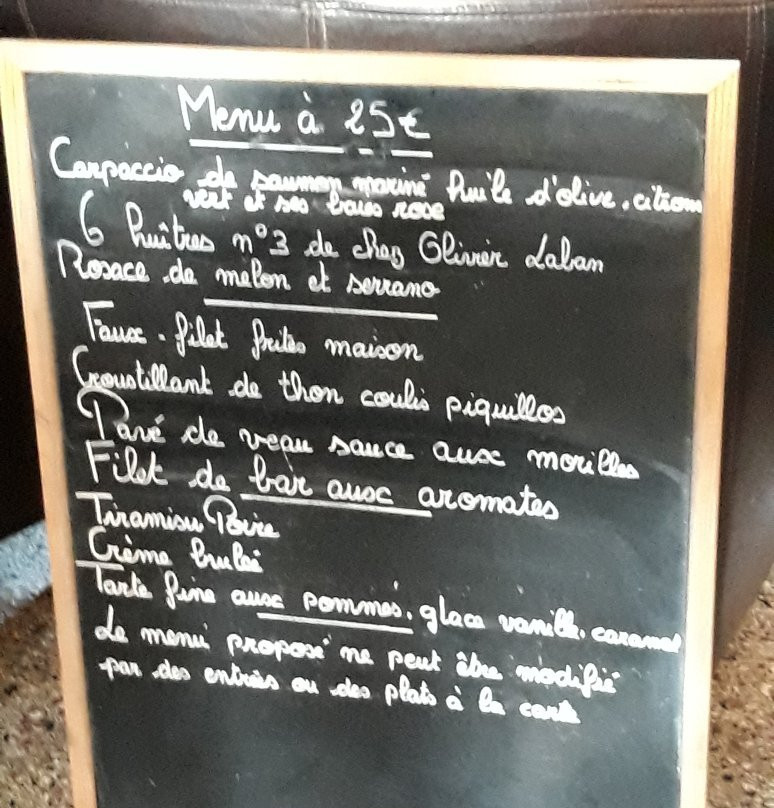 Menu à 25€
Carpaccio de saumon mariné huile d'olive. citron
vert et ses baies rose
6 huîtres n°3 de chez Olivier Laban
Rosace de melon et serrano
Faux-filet frites maison
Croustillant de thon coulis piquillos
Pavé de veau sauce aux morilles
Filet de bar aux aromates
Tiramisu Poire
Crème brulée
Tarte fine aux pommes. glace vanille. caramel
Le menu proposé ne peut être modifié
par des entrées ou des plats à la carte